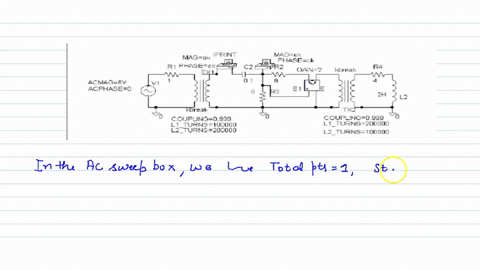 MAG=ok IPRINT MAG=ok
PHASE=ok PHASE=ok
R1 TX1 C2 R2 GAIN=2 kbreak R4
1 0.1 6 4
ACMAG=6V V1 R3 E1 E 2H L2
ACPHASE=0 8
kbreak TX2
COUPLING=0.999 COUPLING=0.999
L1_TURNS=100000 L1_TURNS=200000
L2_TURNS=200000 L2_TURNS=100000
In the AC sweep box, we Total pts = 1, st.